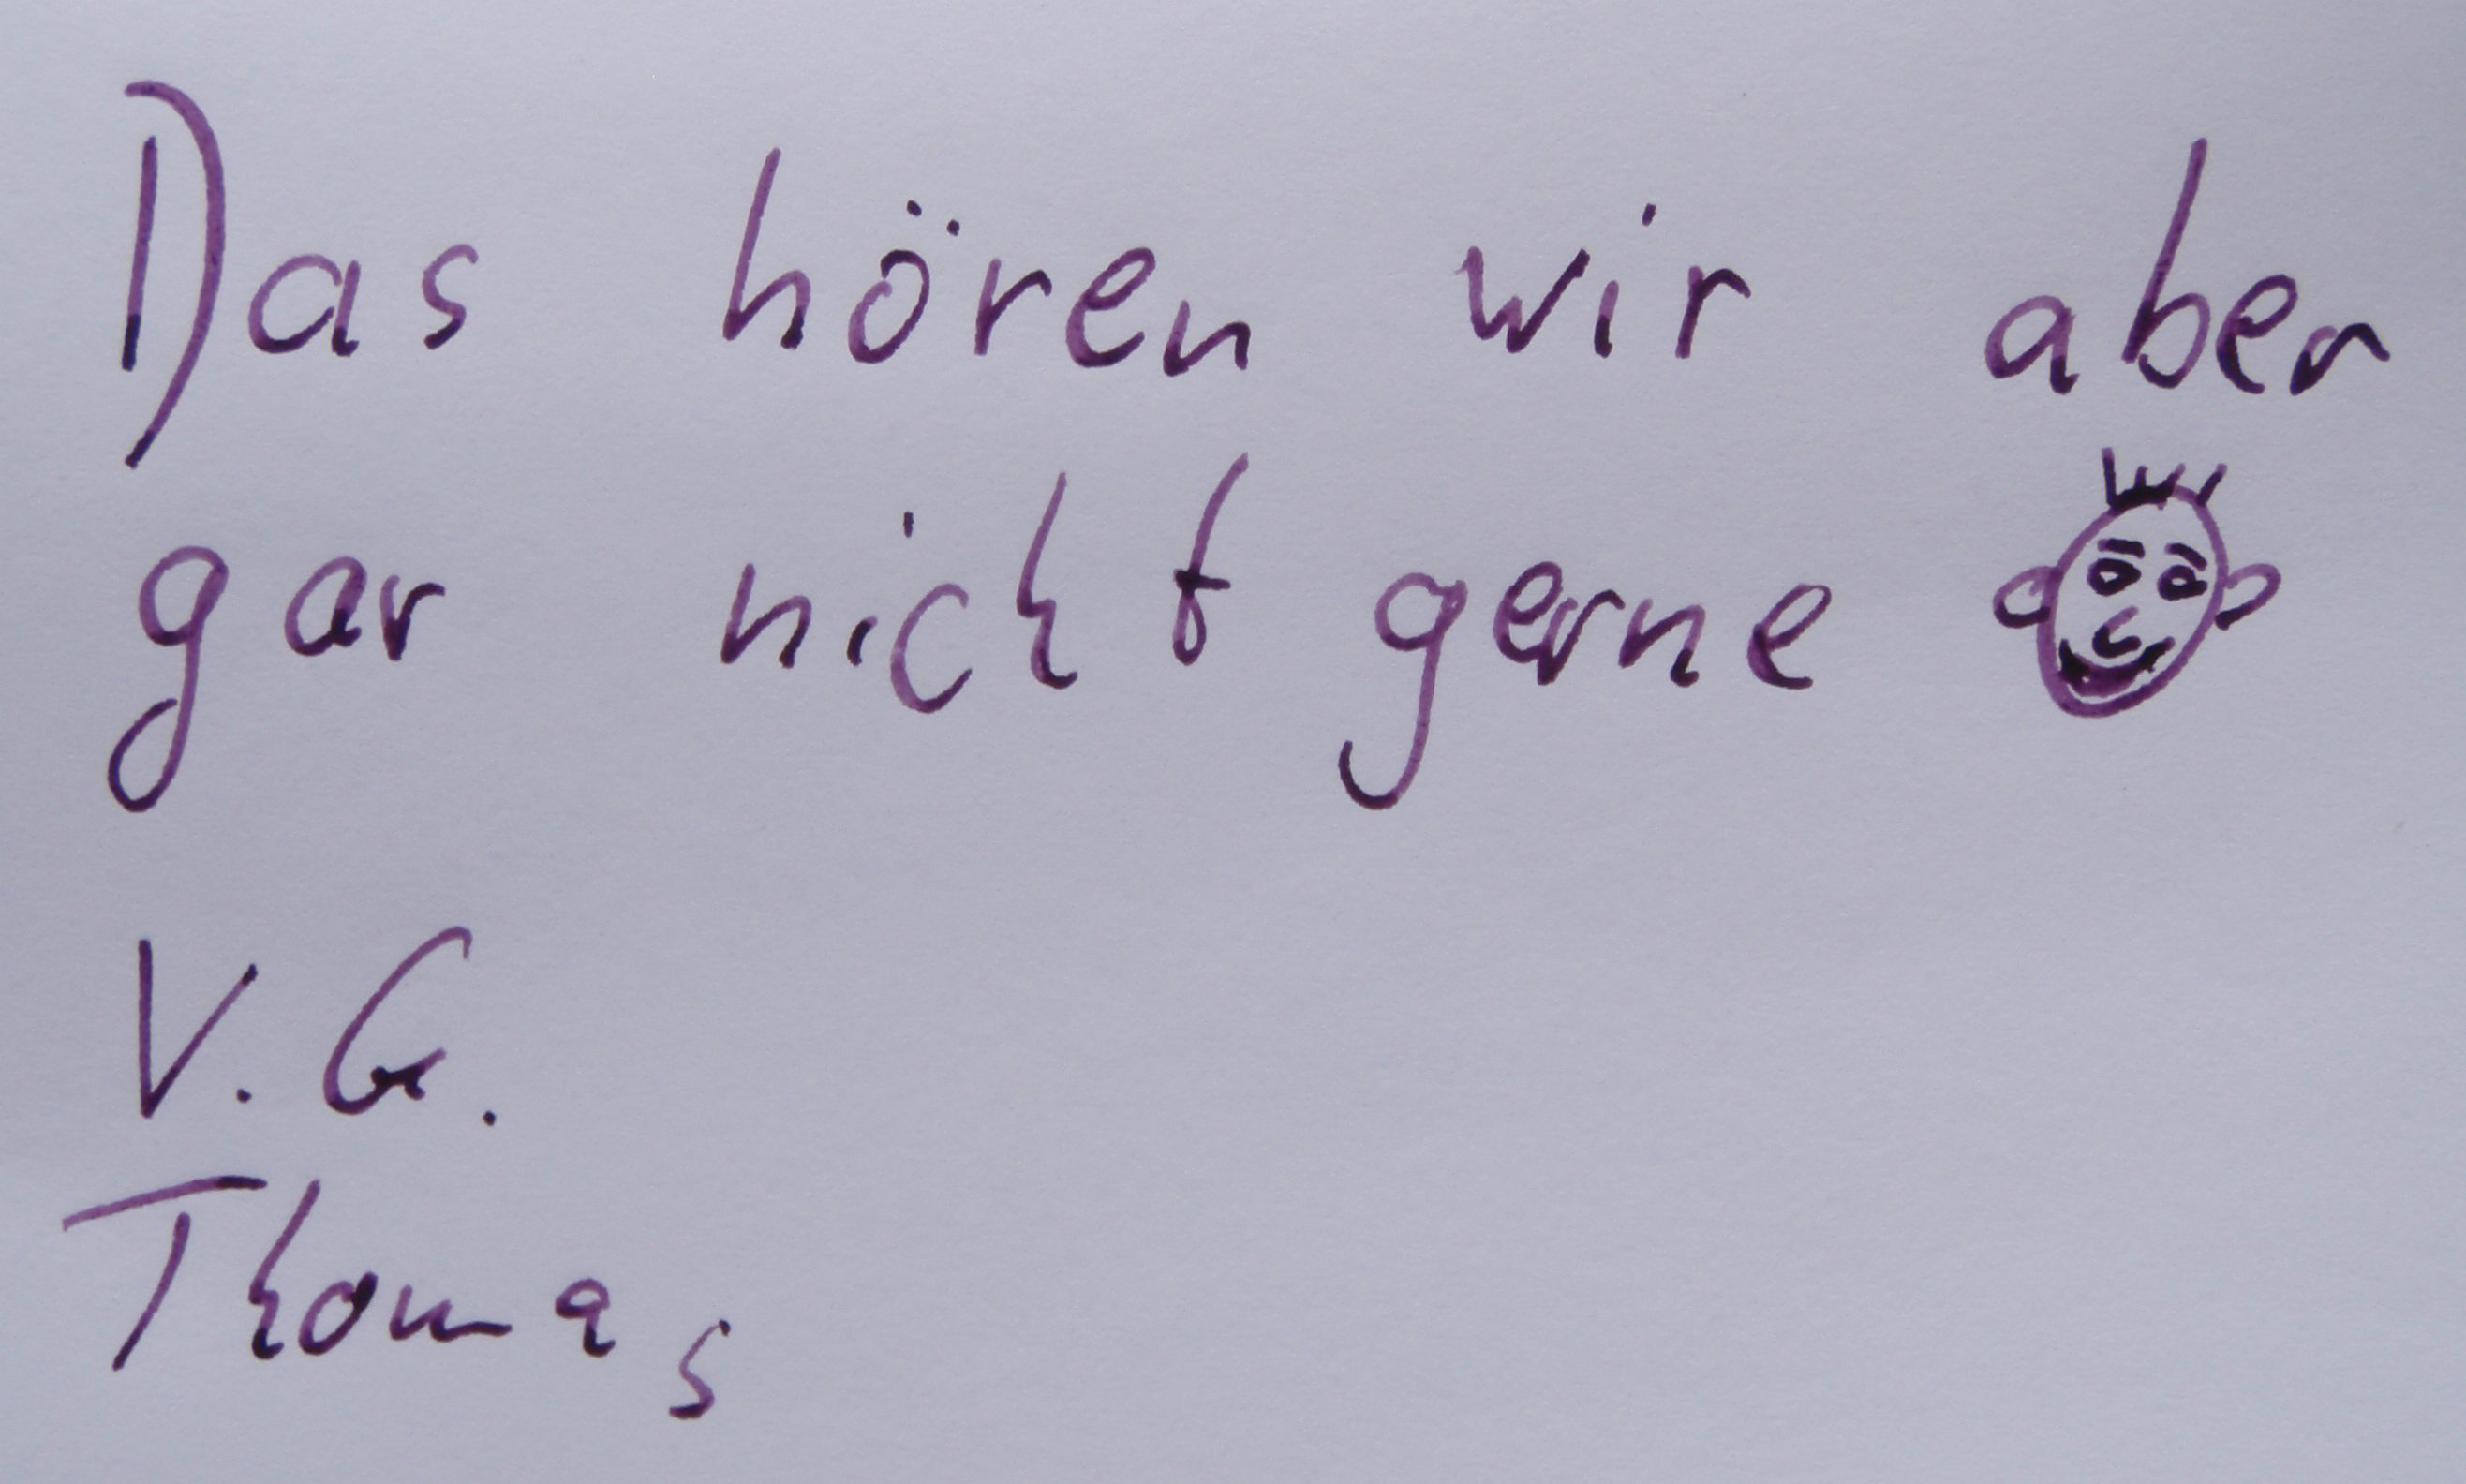 Das hören wir aber
gar nicht gerne
V. G.
Thomas